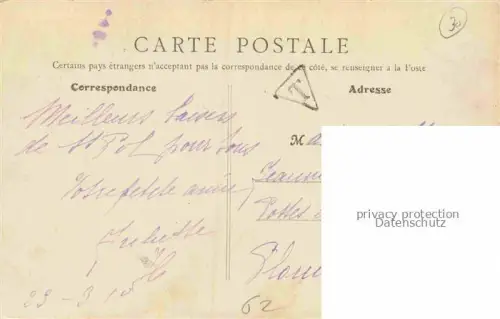 30
CARTE POSTALE
Certains pays étrangers n'acceptant pas la correspondance de ce côté, se renseigner à la Poste
Correspondance
Adresse
T
Meilleurs baisers
de St Pol pour tous
Votre petite amie
Juliette
23-3-10
M
Postes
62
privacy protection
Datenschutz